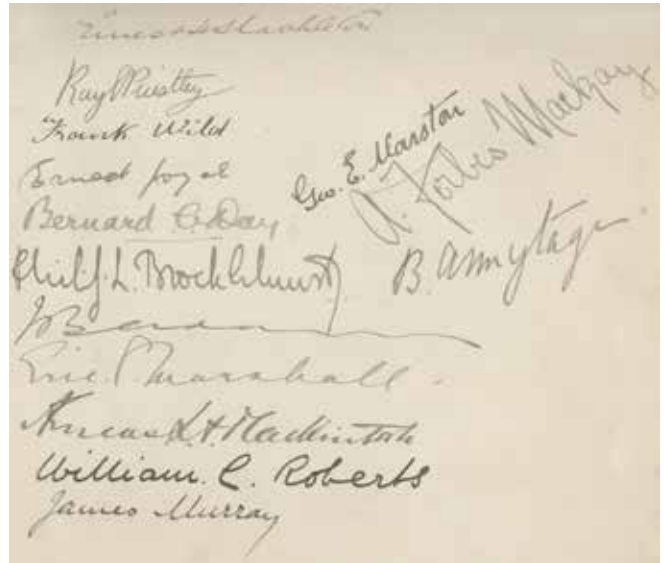 Ernest H Shackleton
Ray E Priestley
Frank Wild
Ernest Joyce
Bernard C. Day
Philip L. Brocklehurst
Eric S. Marshall.
Aeneas L. A. Mackintosh
William. C. Roberts
James Murray
Geo. E. Marston
A. Forbes Mackay
B. Armytage